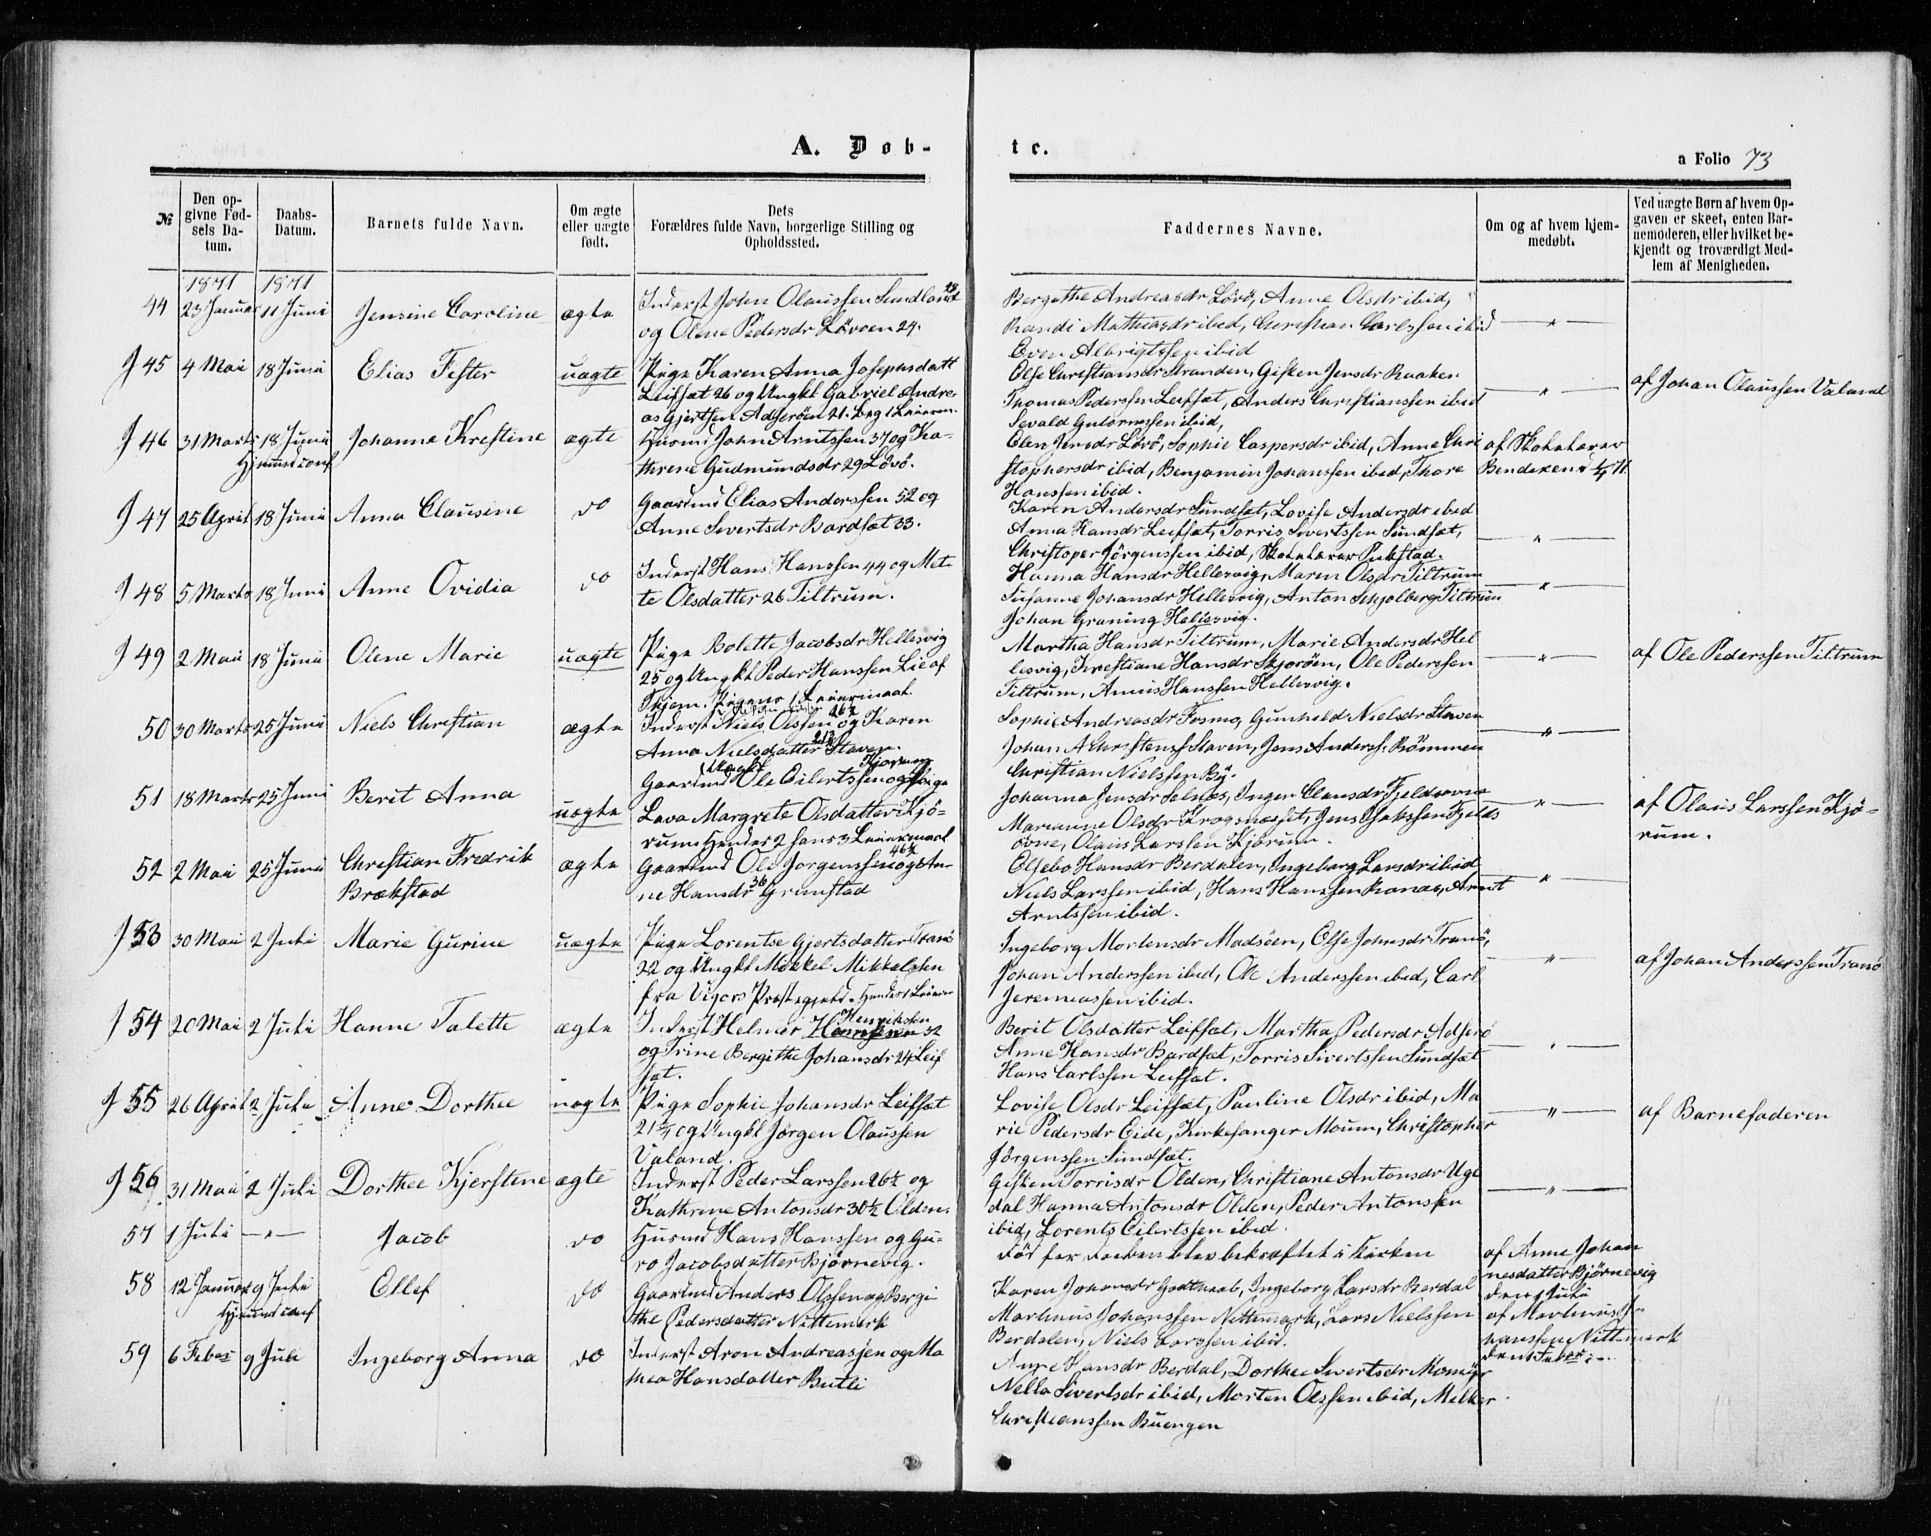 A. Døb- te.
a Folio 73
№
Den opgivne Fødsels Datum.
Daabs-Datum.
Barnets fulde Navn.
Om ægte eller uægte født.
Dets Forældres fulde Navn, borgerlige Stilling og Opholdssted.
Faddernes Navne.
Om og af hvem hjemmedøbt.
Ved uægte Børn af hvem Opgaven er skeet, enten Barnemoderen, eller hvilket bekjendt og troværdigt Medlem af Menigheden.
1871 1871
44 23 Januar 11 Juni Jensine Caroline ægte
Inderst John Olaussen Sundland
og Olene Pedersdr Lövöen 24.
Bergethe Andreasdr Lövö, Anne Olsdr ibid,
Randi Mathiasdr ibid, Christian Carlssen ibid
Even Albrigtssen ibid
45 4 Mai 18 Juni Elias Fester uægte
Pige Karen Anna Josephsdatt
Leifsæt 26 og Ungkl Gabriel Andre-
as Gjertsen Adserøen 21. Beg 1 Leierm.
Olse Christiansdr Stranden, Gisken Jensdr Raaken
Thomas Pederssen Leifsæt, Anders Christianssen ibid
Sevald Gutormssen ibid,
af Johan Olaussen Valand
46 31 Marts 18 Juni Johanna Krestine ægte
Hjemmed conf
Husmd John Arntssen 37 og Ka-
threne Gudmundsdr 29 Lövö.
Olen Jensdr Lövö, Sophie Caspersdr ibid, Anne Chri
stophersdr ibid, Benjamin Johanssen ibid, Thore
Hanssen ibid.
af Skolelærer
Bendixen
47 25 April 18 Juni Anna Clausine do
Gaardmd Elias Anderssen 52 og
Anne Sivertsdr Bardsæt 33.
Karen Andersdr Sundsæt, Lovise Andersdr ibid
Anna Hansdr Leifsæt, Torris Sivertssen Sundsæt,
Christoper Jörgenssen ibid, Skolelærer Pukstad.
48 5 Marts 18 Juni Anne Ovidia do
Inderst Hans Hanssen 44 og Met-
te Olsdatter 26 Tiltrum.
Hanna Hansdr Hellesvig, Maren Olsdr Tiltrum
Susanne Johansdr Hellesvig, Anton Skjolberg Tiltrum
Johan Graning Hellesvig.
49 2 Mai 18 Juni Olene Marie uægte
Pige Bolette Jacobsdr Hellesvig
25 og Ungkl Peder Hanssen Lie af
Skjorn. Pigens 1 Leiermaal.
Martha Hansdr Tiltrum, Marie Andersdr Hel
lesvig, Krestiane Hansdr Skjoröen, Ole Pederssen
Tiltrum, Annis Hanssen Hellesvig.
af Ole Pederssen Tiltrum
50 30 Marts 25 Juni Niels Christian ægte
Inderst Niels Olssen 26½ og Karen
Anna Nielsdatter Staven.
Sophie Andreasdr Fosmo, Gunhild Nielsdr Staven
Johan A Christenss Staven, Jens Anderss: Römmen
Christian Nielssen By.
51 18 Marts 25 Juni Berit Anna uægte
Gaardmd Ungkl Ole Eilertssen Kjorum og Pige
Lava Margrete Olsdatter Kjö-
rum Hendes 2 hans 3 Leiermaal
Johanna Jensdr Selnæs, Inger Clausdr Fjeldsövre
Marianne Olsdr Krognæsset, Jens Jakssen Fjelds
övne, Olaus Larssen Kjörum.
af Olaus Larssen Kjö-
rum.
52 2 Mai 25 Juni Christian Fredrik ægte
Brækstad
Gaardmd Ole Jörgenssen 46½ og An-
ne Hansdr 36 Grunstad
Elsebo Hansdr Berdalen, Ingeborg Larsdr ibid
Niels Larssen ibid, Hans Hanssen Ranas, Arnt
Arntssen ibid.
53 30 Mai 2 Juli Marie Gurine uægte
Pige Lorentse Gjertsdatter Tranö
22 og Ungkl Mikkel Mikkelsen
fra Vigers Præstegjeld. Hendes 1 Leierm
Ingeborg Mortensdr Madsöen, Else Johnsdr Tranö,
Johan Anderssen ibid, Ole Anderssen ibid, Carl
Jeremiassen ibid.
af Johan Anderssen Tranö
54 20 Mai 2 Juli Hanne Talette ægte
Inderst Helmer Hansen Henriksen 32
og Trine Bergithe Johansdr 24 Leif
sæt.
Berit Olsdatter Leifsæt, Martha Pedersdr Adserö
Anne Hansdr Bardsæt, Torris Sivertssen Sundsæt
Hans Carlssen Leifsæt.
55 26 April 2 Juli Anne Dorthee uægte
Pige Sophie Johansdr Leifsæt
21 ¾ og Ungkl Jørgen Olaussen
Valand.
Lovise Olsdr Leifsæt, Pauline Olsdr ibid, Ma
rie Pedersdr Eide, Kirkesanger Moum, Christopher
Jörgenssen Sundsæt.
af Barnefaderen
56 31 Mai 2 Juli Dorthee Kjerstene ægte
Inderst Peder Larssen 26½ og
Kathrine Antonsdr 30½ Olden.
Gisken Torrisdr Olden, Christiane Antonsdr Uge
dal Hanna Antonsdr Olden, Peder Antonssen
ibid, Lorents Eilertssen ibid.
57 1 Juli Jacob do
Husmd Hans Hanssen og Gu-
ro Jacobsdatter Bjørnevig.
död før Daaben blev bekræftet i Kirken
af Anne Johan
nesdatter Bjørnevig
den 1 Juli
58 12 Januar 9 Juli Ellef do
hjemmed conf
Gaardmd Anders Olssen og Bergi
the Pedersdatter Nettemark
Karen Johansdr Godthaab, Ingeborg Larsdr Berdal
Martinus Johanssen Nettemark, Lars Nielssen
Berdalen, Niels Larssen ibid.
af Martinus Jo-
hanssen Nettemark
59 6 Febr 9 Juli Ingeborg Anna do
Inderst Aron Andreasjen og Ma
thea Hansdatter Butli
Anne Hansdr Berdal, Dorthee Sivertsdr Momyr
Nella Sivertsdr ibid, Morten Olssen ibid, Melker
Christianssen Buengen